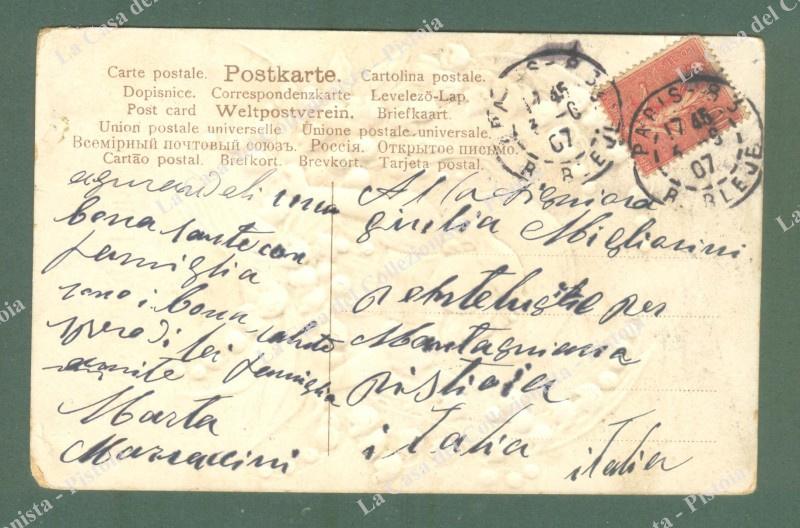 Carte postale. Postkarte. Cartolina postale.
Dopisnice. Correspondenzkarte Levelezö-Lap.
Post card Weltpostverein. Briefkaart.
Union postale universelle Unione postale universale.
Всемірный почтовый союзъ. Россія. Открытое письмо.
Cartão postal. Brefkort. Brevkort. Tarjeta postal.
PARIS-83
17 45
07
R. BLEUE
PARIS-83
17 45
07
R. BLEUE
una
bona sante con
famiglia
sono i bona salute
spero di lei famiglia
Marta
Alla signiora
giulia Migliorini
per
Montagniana
pistioia
italia
italia
La Casa del Collezionista - Pistoia